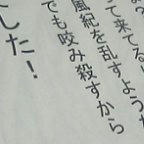 て来てる!
風紀を乱すよう
でも咬み殺すから
した!